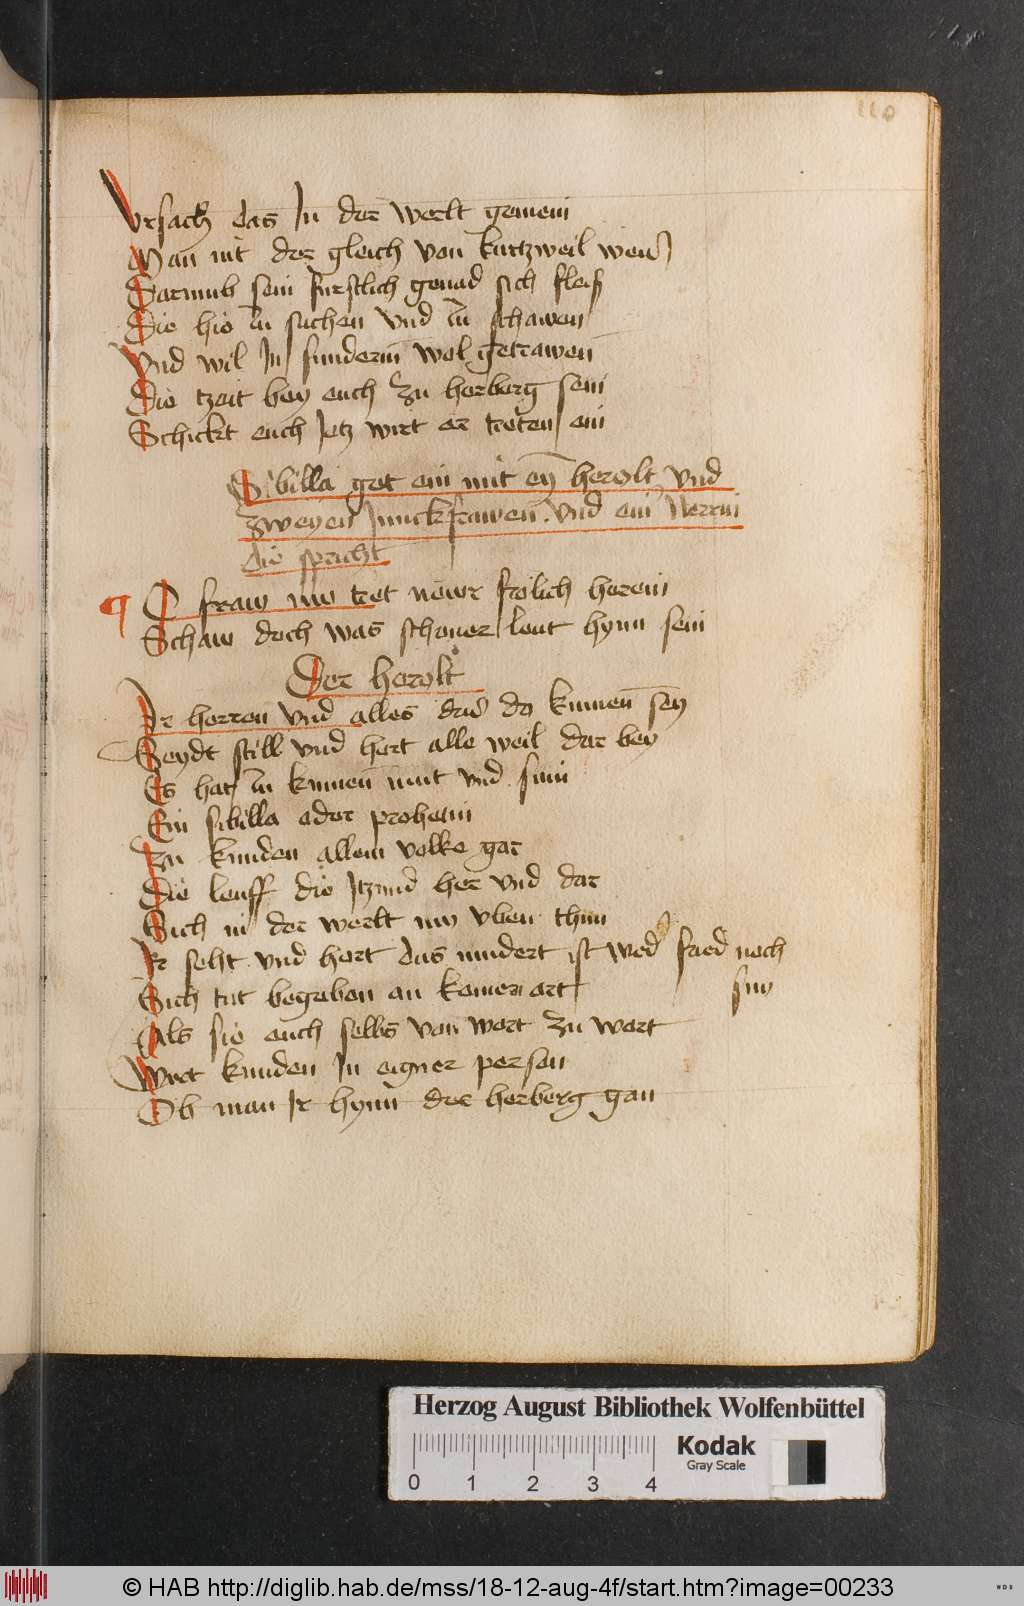 110
Vrsach das In der werlt gemein
Man nit der gleich von kurtzweil wein
Darumb sein furstlich genad sich fleiß
Die hie zu suchen vnd zu schawen
Vnd wil In sundern̄ wol getrawen
Die tzeit bey euch zu herberg sein
Schickt euch Jetz wirt er treten ein
Sibilla get ein mit ey̅ herolt vnd
zweyen Junckfrawen vnd ein Nerrin
die spricht
O fraw nw tret newr frolich herein
Schaw doch was schoner leut hynn sein
Der herolt
Ir herren vnd alles das do kumen̄ sey
Seydt still vnd hort alle weil dar bey
Es hat zu kumen̄ mut vnd sinn
Ein sibilla oder prohetin
Zu kunden allem volke gar
Die leuff die Itzund her vnd dar
Sich in der werlt nw vben thun
Ir seht vnd hort das nindert ist wed̕ fried noch
sun
Sich tut begeben an keinem ort
Als sie euch selbs von wort zu wort
Wirt kunden In eigner person
Ob man Ir hynn der herberg gan
Herzog August Bibliothek Wolfenbüttel
Kodak
Gray Scale
0 1 2 3 4
© HAB http://diglib.hab.de/mss/18-12-aug-4f/start.htm?image=00233